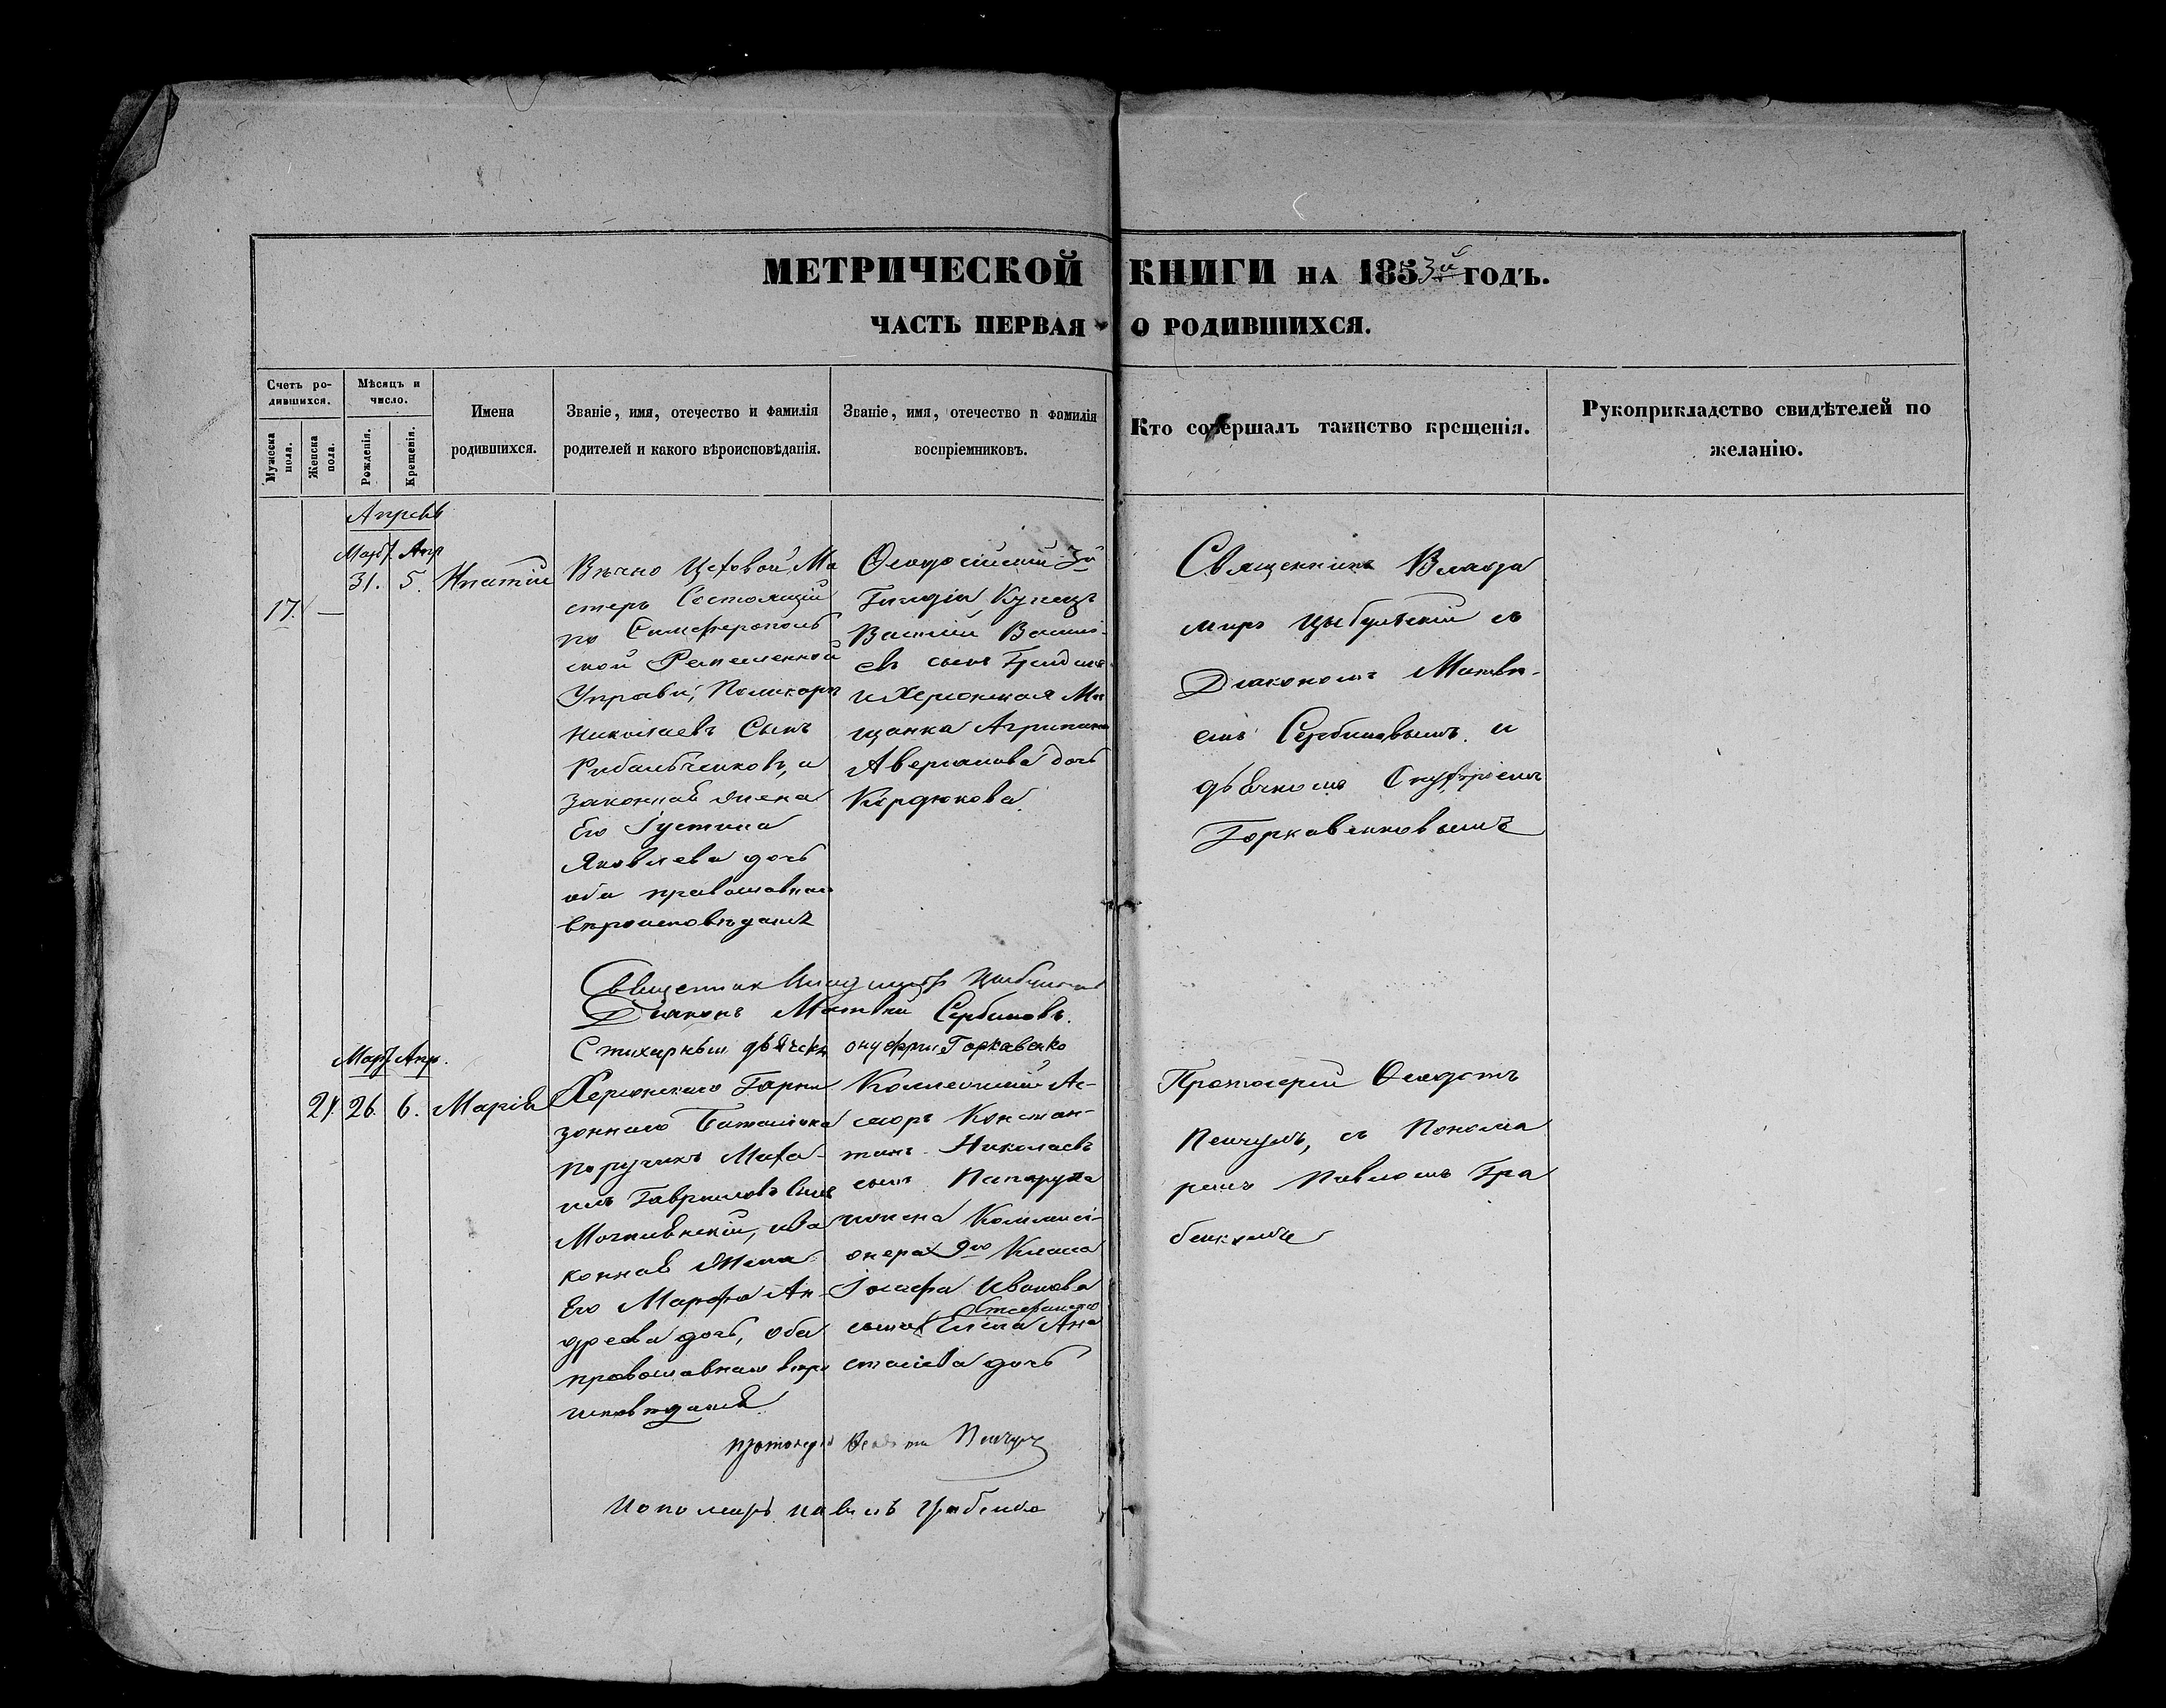 МЕТРИЧЕСКОЙ КНИГИ НА 1853й ГОДЪ.
ЧАСТЬ ПЕРВАЯ О РОДИВШИХСЯ.
Счетъ ро-
дившихся.
Мужеска
пола.
Женска
пола.
Мѣсяцъ и
число.
Рожденія.
Крещенія.
Имена
родившихся.
Званіе, имя, отечество и фамилія
родителей и какого вѣроисповѣданія.
Званіе, имя, отечество и фамилія
воспріемниковъ.
Кто совершалъ таинство крещенія.
Рукоприкладство свидѣтелей по
желанію.
Апрель
Март. Апр
17. — 31. 5. Ипатій
Вѣчно Цеховой Ма
стеръ Состоящій
по Симферополь
ской Ремесленной
Управы, Поликарпъ
Николаевъ Сынъ
Рибальченковъ, и
законная жена
Его Іустина
Яковлева дочь
оба православнаго
вѣроисповѣданія
Ѳеодосійский 3й
Гильдіи Купецъ
Василій Василі-
евъ сынъ
и Херсонская Мѣ
щанка Агрипина
Аверьянова дочь
Кордюкова.
Священникъ Влади
миръ Цыбульскій съ
Діакономъ Матвѣ-
емъ Сербиновымъ и
дьячкомъ Онуфріемъ
Горкавенковымъ
Священник Владимиръ
Діаконъ Матвѣй Сербиновъ.
Стихарный дьячекъ онуфрий Горкавенко
Март. Апр.
21. 26. 6. Марія
Херсонскаго Гарни
зоннаго Баталіона
поручикъ Миха-
илъ Гавриловъ Сынъ
и за
конная жена
Его Марфа Ан-
дреева дочь, оба
православнаго вѣро
исповѣданія.
Коллежскій Ас-
сесоръ Констан-
тинъ Николаевъ
сынъ Папарупа
и жена Комиссі-
онера 9го Класса
Іосифа Иванова
Стефанско
сына Елена Ана
стасіева дочь
Протоіерей Ѳеодотъ
съ Понома
ремъ Павломъ Гра
бенкомъ
протоіерей
Пономарь павелъ Грабенко